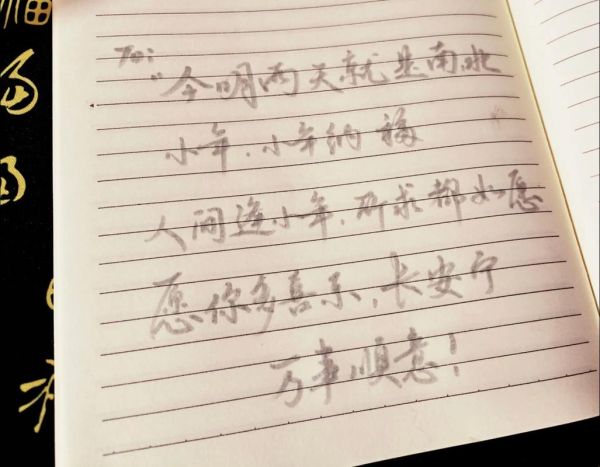 To:
"今明两天就是南北
小年，小年纳福
人间逢小年，所求都如愿
愿你多喜乐，长安宁
万事顺意！
福